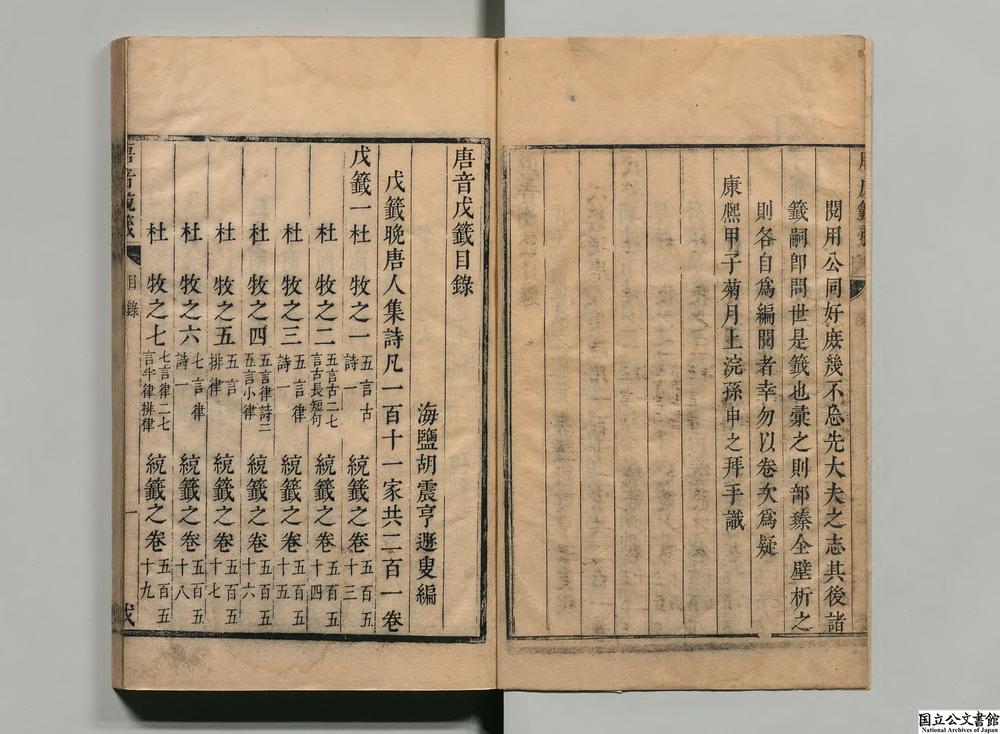 閱用公同好庶幾不忘先大夫之志其後諸
籤嗣卽問世是籤也彙之則部臻全壁析之
則各自爲編閱者幸勿以卷次爲疑
康熙甲子菊月上浣孫申之拜手識
唐音戊籤目錄
海鹽胡震亨遯叟編
戊籤晚唐人集詩凡一百十一家共二百一卷
戊籤一杜牧之一 五言古詩一 統籤之卷五百五十三
杜牧之二 五言古二七言古長短句 統籤之卷五百五十四
杜牧之三 五言律詩一 統籤之卷五百五十五
杜牧之四 五言律詩二五言小律 統籤之卷五百五十六
杜牧之五 五言排律 統籤之卷五百五十七
杜牧之六 七言律詩一 統籤之卷五百五十八
杜牧之七 七言律二七言半律排律 統籤之卷五百五十九
唐音戊籤 目錄 一
国立公文書館
National Archives of Japan